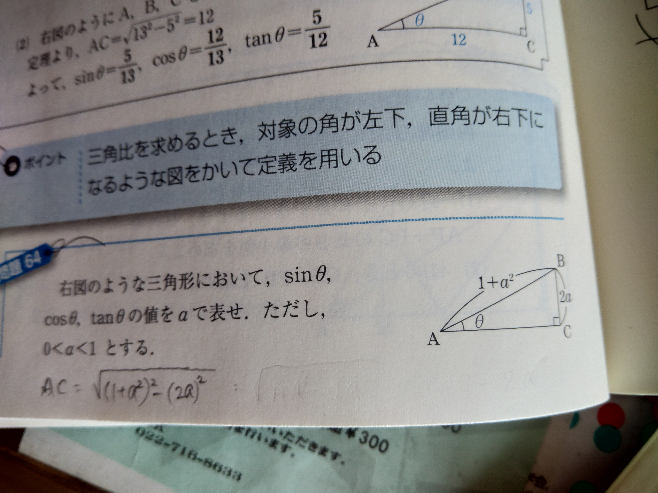 (2) 右図のように A, B, C
定理より, AC=√13²−5²=12
よって, sinθ=5/13, cosθ=12/13, tanθ=5/12
A
θ
12
5
C
ポイント
三角比を求めるとき, 対象の角が左下, 直角が右下に
なるような図をかいて定義を用いる
題 64
右図のような三角形において, sinθ,
cosθ, tanθの値をaで表せ. ただし,
0<a<1 とする.
AC = √(1+a²)²−(2a)²
B
1+a²
2a
θ
A
C
いただきます。
行います。
300
022-716-8633